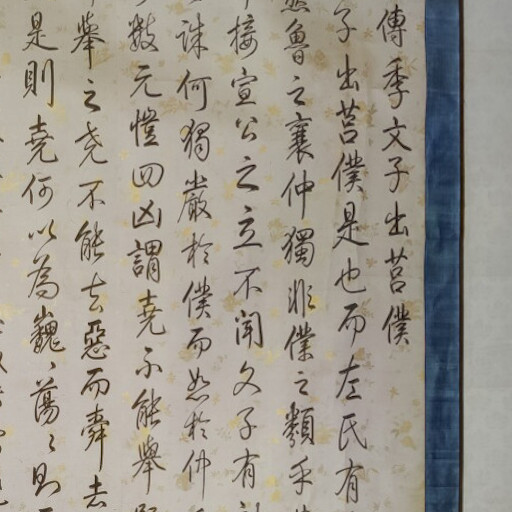 傳季文子出莒僕
子出莒僕是也而左氏有
魯之襄仲獨非僕之類乎
接宣公之立不聞文子有
誅何獨嚴於僕而恕於仲
數元愷四凶謂堯不能舉
舉之堯不能去惡而舜去
是則堯何以為巍〻蕩〻則